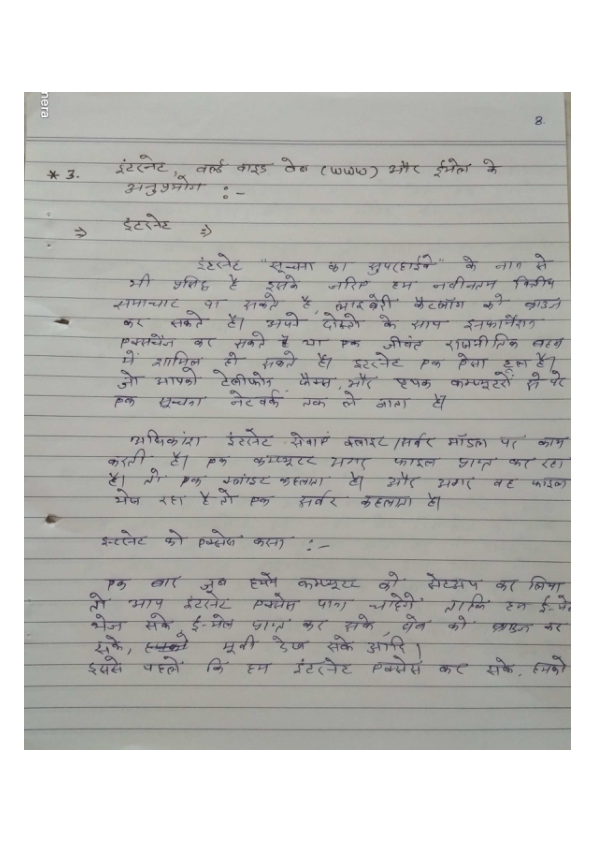 nera
8.
* 3. इंटरनेट, वर्ल्ड वाइड वेब (WWW) और ईमेल के
अनुप्रयोग :-
⇒ इंटरनेट ⇒
इंटरनेट "सूचना का सुपरहाईवे" के नाम से
भी प्रसिद्ध है इसके जरिए हम नवीनतम वित्तीय
समाचार पा सकते है, लाइब्रेरी कैटलॉग को ब्राउज
कर सकते है। अपने दोस्तो के साथ इनफार्मेशन
एक्सचेंज कर सकते है या एक जीवंत राजनीतिक बहस
में शामिल हो सकते है। इंटरनेट एक ऐसा टूल है।
जो आपको टेलीफोन, फैक्स, और पृथक कम्प्यूटरों से परे
एक सूचना नेटवर्क तक ले जाता है।
अधिकांश इंटरनेट सेवाएं क्लाइंट/सर्वर मॉडल पर काम
करती है। एक कम्प्यूटर अगर फाइल प्राप्त कर रहा
है। तो एक क्लांइट कहलाता है। और अगर वह फाइल
भेज रहा है तो एक सर्वर कहलाता है।
इन्टरनेट को एक्सेस करना :-
एक बार जब हमने कम्प्यूटर को सेटअप कर लिया
तो आप इंटरनेट एक्सेस पाना चाहेगें ताकि हम ई-मेल
भेज सके, ई-मेल प्राप्त कर सके, वेब को ब्राउज कर
सके, मूवी देख सके आदि।
इससे पहले कि हम इंटरनेट एक्सेस कर सके. हमको